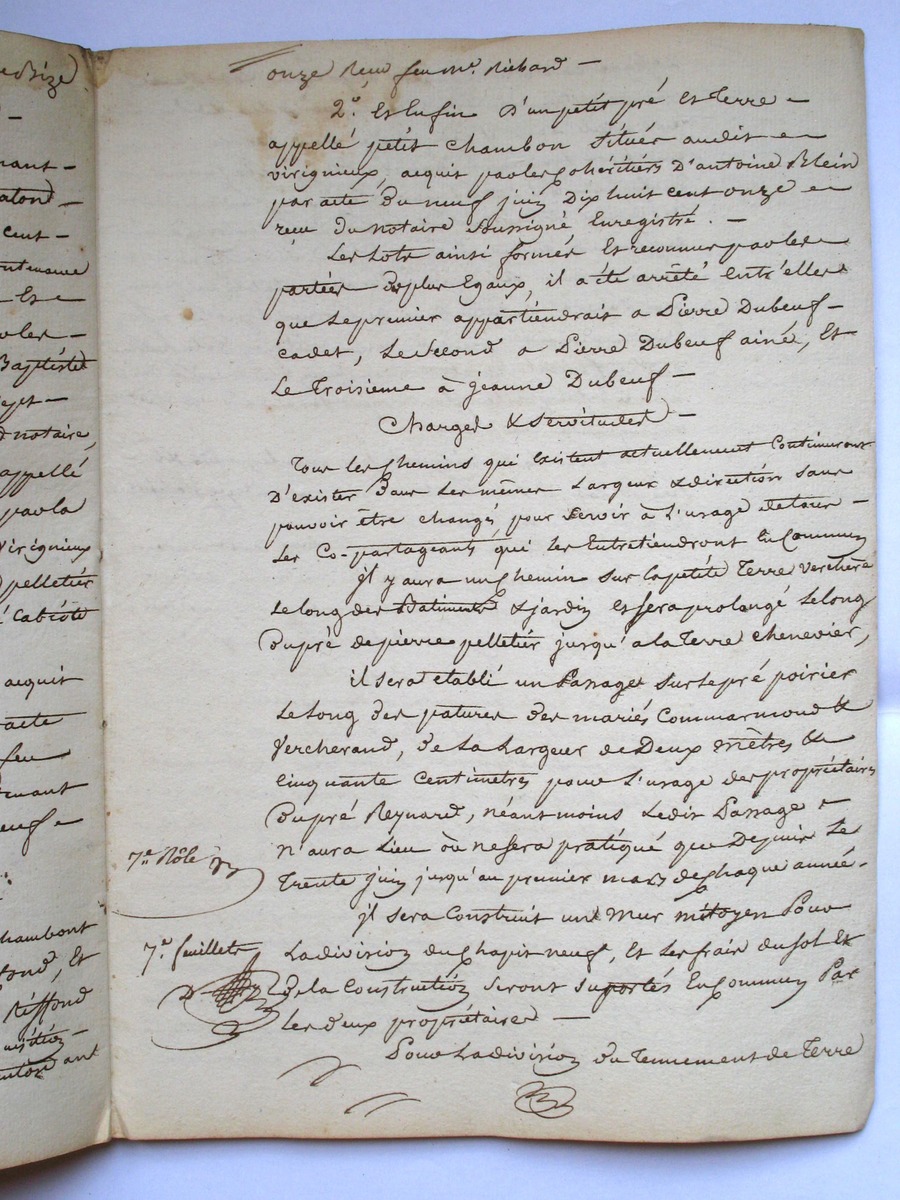 edrize
nant -
aton -
cent -
ntenance
Et
parles -
Baptiste
sept -
notaire,
appellé
par la
virignieux
pelletier
Cabiote
acquit
acte
feu
tenant
euf
chambont
fond, Et
Réffond
uisition
ant
onze Reçu feu Me. Richard -
2°. Et Enfin D'un petit pré Et Terre
appellé petit Chambon Situés audit
virignieux, acquit par les Cohéritiers D'antoine Blein
par acte du neuf juin Dix huit cent onze
reçu du notaire Soussigné Enregistré. -
Les Lots ainsi formés Et reconnus par les
parties des plus Egaux, il a été arrêté entr'elles
que Le premier appartiendrait a Pierre Dubeuf -
cadet, Le Second a Pierre Dubeuf ainé, Et
Le Troisieme à jeanne Dubeuf -
Charges & servitudes -
Tous les Chemins qui Existent actuellement Continueront
D'exister Dans Les mêmes Largeur & direction sans
pouvoir être changés, pour servir à L'usage de tous -
Les Co-partageants, qui les Entretiendront En Commun
jl y aura un chemin sur la petite Terre verchere
Le long des Batiments & jardin Et sera prolongé Le long
Du pré de pierre pelletier jusqu'a la Terre chenevier,
il sera établi un Passage sur Le pré poirier
Le long des patures des mariés Commarmond &
Vercherand, de La Largeur de Deux mètres &
Cinquante Centimètres pour L'usage des propriétaires
Du pré Reynard, néant moins Ledit Passage
n'aura Lieu où ne sera pratiqué que Depuis Le
Trente juin jusqu'au premier mars de chaque année -
jl sera Construit un Mur mitoyen Pour
La division du Chapit neuf, Et Les frais du sol Et
De la Construction seront Supportés En Commun Par
Les deux propriétaires -
Pour La division du Tennement de Terre
7e. Rôle
7e. feuillet